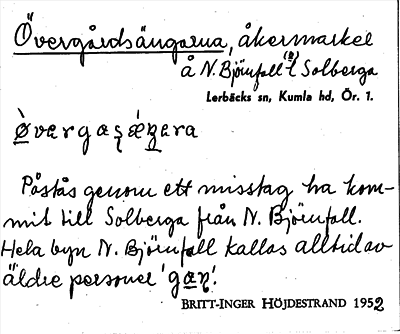 Övergårdsängarna, åkermarker
å N. Björnfall (B) t Solberga
Lerbäcks sn, Kumla hd, Ör. 1.
Påstås genom ett misstag ha kom-
mit till Solberga från N. Björnfall.
Hela byn N. Björnfall kallas alltid av
äldre personer
BRITT-INGER HÖJDESTRAND 1952